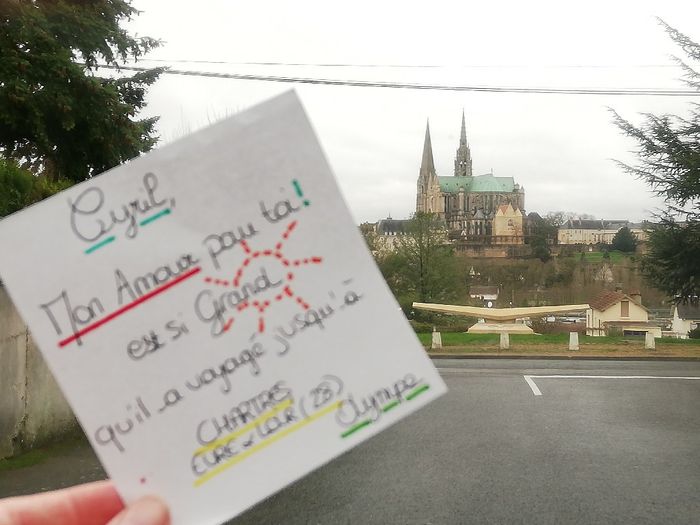 Cyril,
Mon Amour pour toi!
est si Grand
qu'il a voyagé jusqu'à
CHARTRES
EURE et LOIR (28)
Olympe